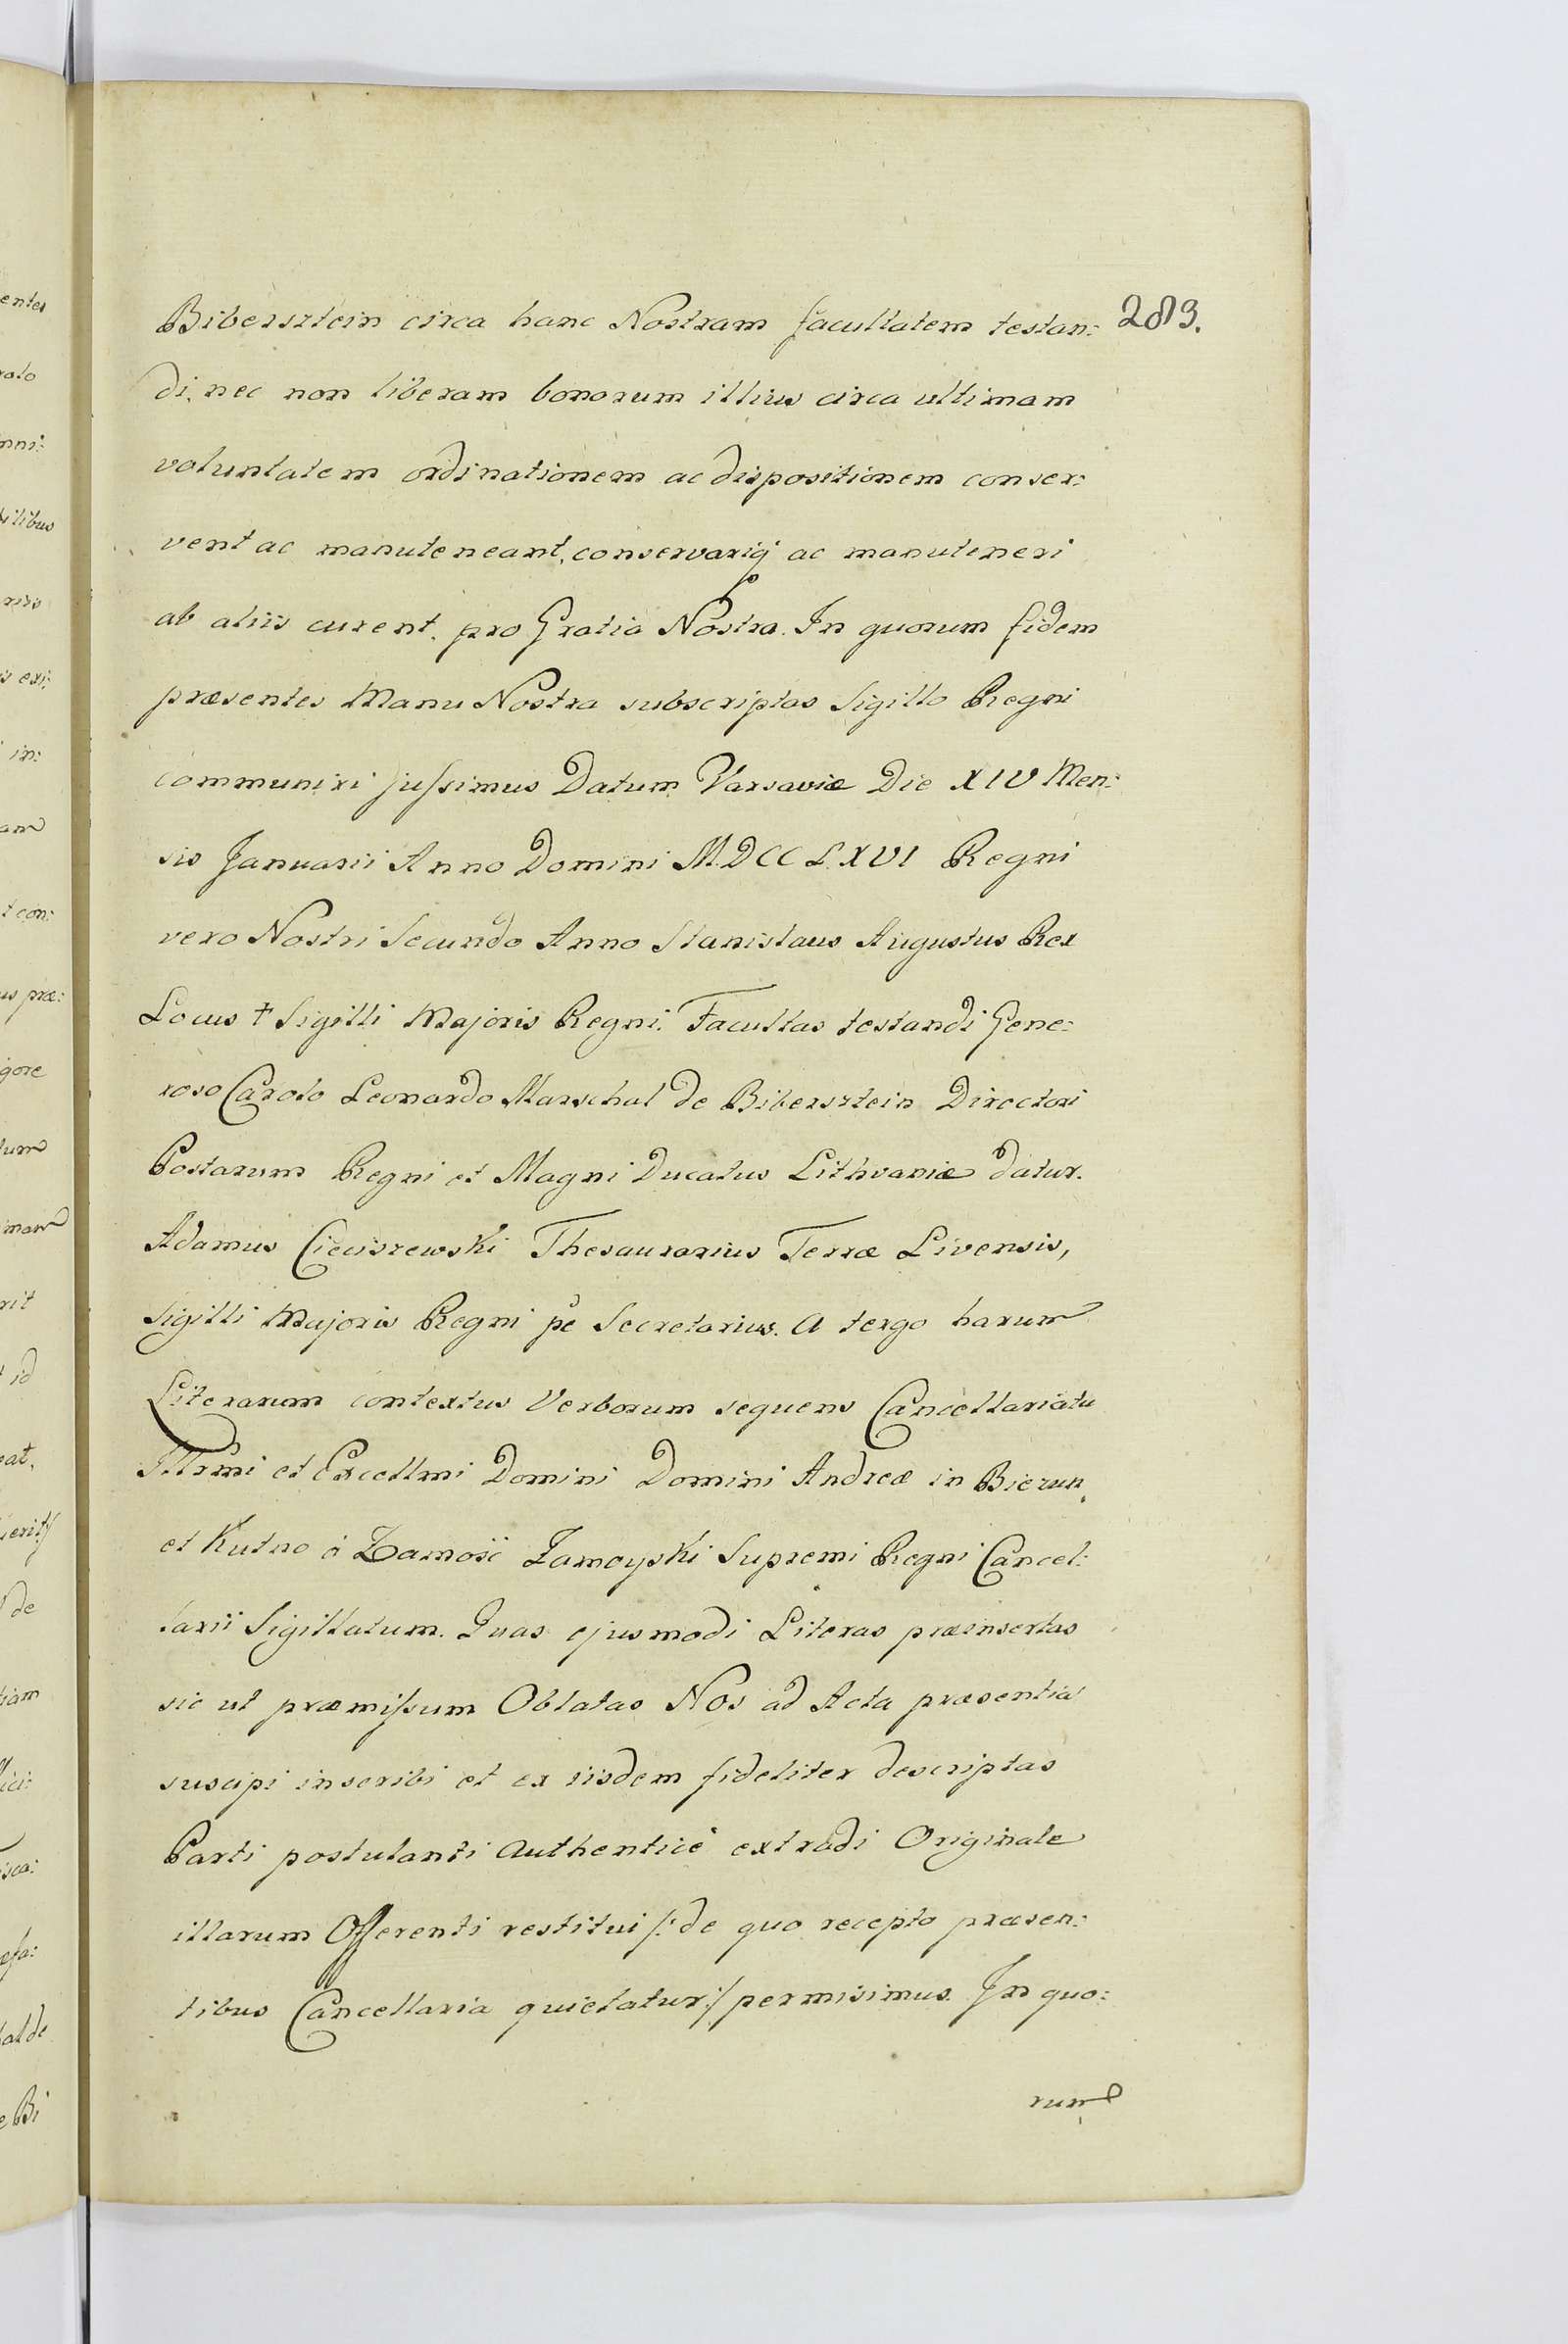 283.
Bibersztein circa hanc Nostram facultatem testan:
di, nec non liberam bonorum illius circa ultimam
voluntatem ordinationem ac dispositionem conser:
vent ac manuteneant, conservariq́ ac manuteneri
ab aliis curent. pro Gratia Nostra. In quorum fidem
præsentes Manu Nostra subscriptas Sigillo Regni
communiri jussimus Datum Varsaviæ Die XIV Men:
sis Januarii Anno Domini M.DCCLXVI Regni
vero Nostri Secundo Anno Stanislaus Augustus Rex
Locus † Sigilli Majoris Regni. Facultas testandi Gene:
roso Carolo Leonardo Marschal de Bibersztein Directori
Postarum Regni et Magni Ducatus Lithvaniæ datur.
Adamus Cieciszewski Thesaurarius Terræ Livensis,
Sigilli Majoris Regni pe Secretarius. A tergo harum
Literarum contextus Verborum sequens Cancellariatu
Illrmi et Excellmi Domini Domini Andreæ in Biezun,
et Kutno à Zamość Zamoyski Supremi Regni Cancel:
larii Sigillatum. Quas ejusmodi Literas præinsertas
sic ut præmissum Oblatas Nos ad Acta præsentia
suscipi inscribi et ex iisdem fideliter descriptas
Parti postulanti authenticè extradi Originale
illarum Offerenti restitui /: de quo recepto præsen:
tibus Cancellaria quietatur :/ permisimus. In quo:
rum